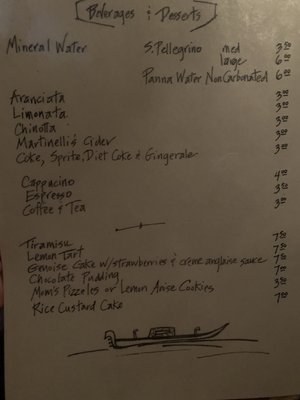 Beverages & Desserts
Mineral Water S.Pellegrino med 3.00
large 6.00
Panna Water NonCarbonated 6.00
Aranciata 3.00
Limonata 3.00
Chinotta 3.00
Martinelli's Cider 3.00
Coke, Sprite, Diet Coke & Gingerale 3.00
Cappucino 4.00
Espresso 3.00
Coffee & Tea 3.00
Tiramisu 7.50
Lemon Tart 7.00
Genoise Cake w/strawberries & crème anglaise sauce 7.00
Chocolate Pudding 7.00
Mom's Pizzeles or Lemon Anise Cookies 3.00
Rice Custard Cake 7.00